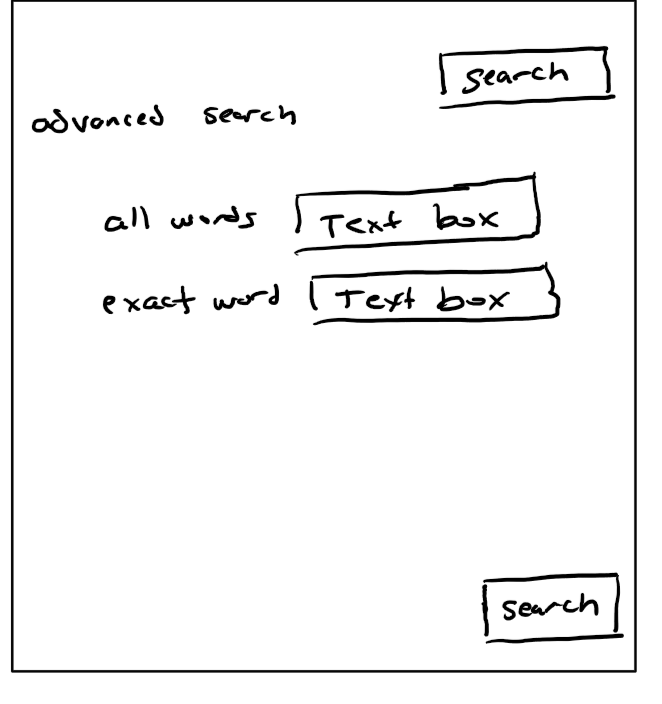 search
advanced search
all words Text box
exact word Text box
search